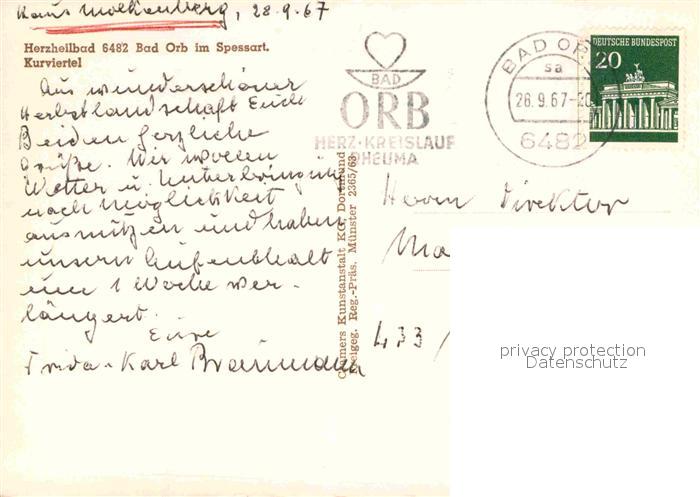 Haus Molkenberg, 28.9.67
Herzheilbad 6482 Bad Orb im Spessart.
Kurviertel
Aus wunderschöner
Herbstlandschaft Euch
Beiden herzliche
Grüße. Wir wollen
Wetter u. Unterbringung
nach Möglichkeit
ausnützen und haben
unsern Aufenthalt
um 1 Woche ver-
längert.
Eure
Frida - Karl
BAD
ORB
HERZ·KREISLAUF
RHEUMA
BAD ORB
sa
26.9.67-20
6482
DEUTSCHE BUNDESPOST
20
Cramers Kunstanstalt KG, Dortmund
Freigeg. Reg.-Präs. Münster 2365/63
Herrn Direktor
Ma
433/
privacy protection
Datenschutz